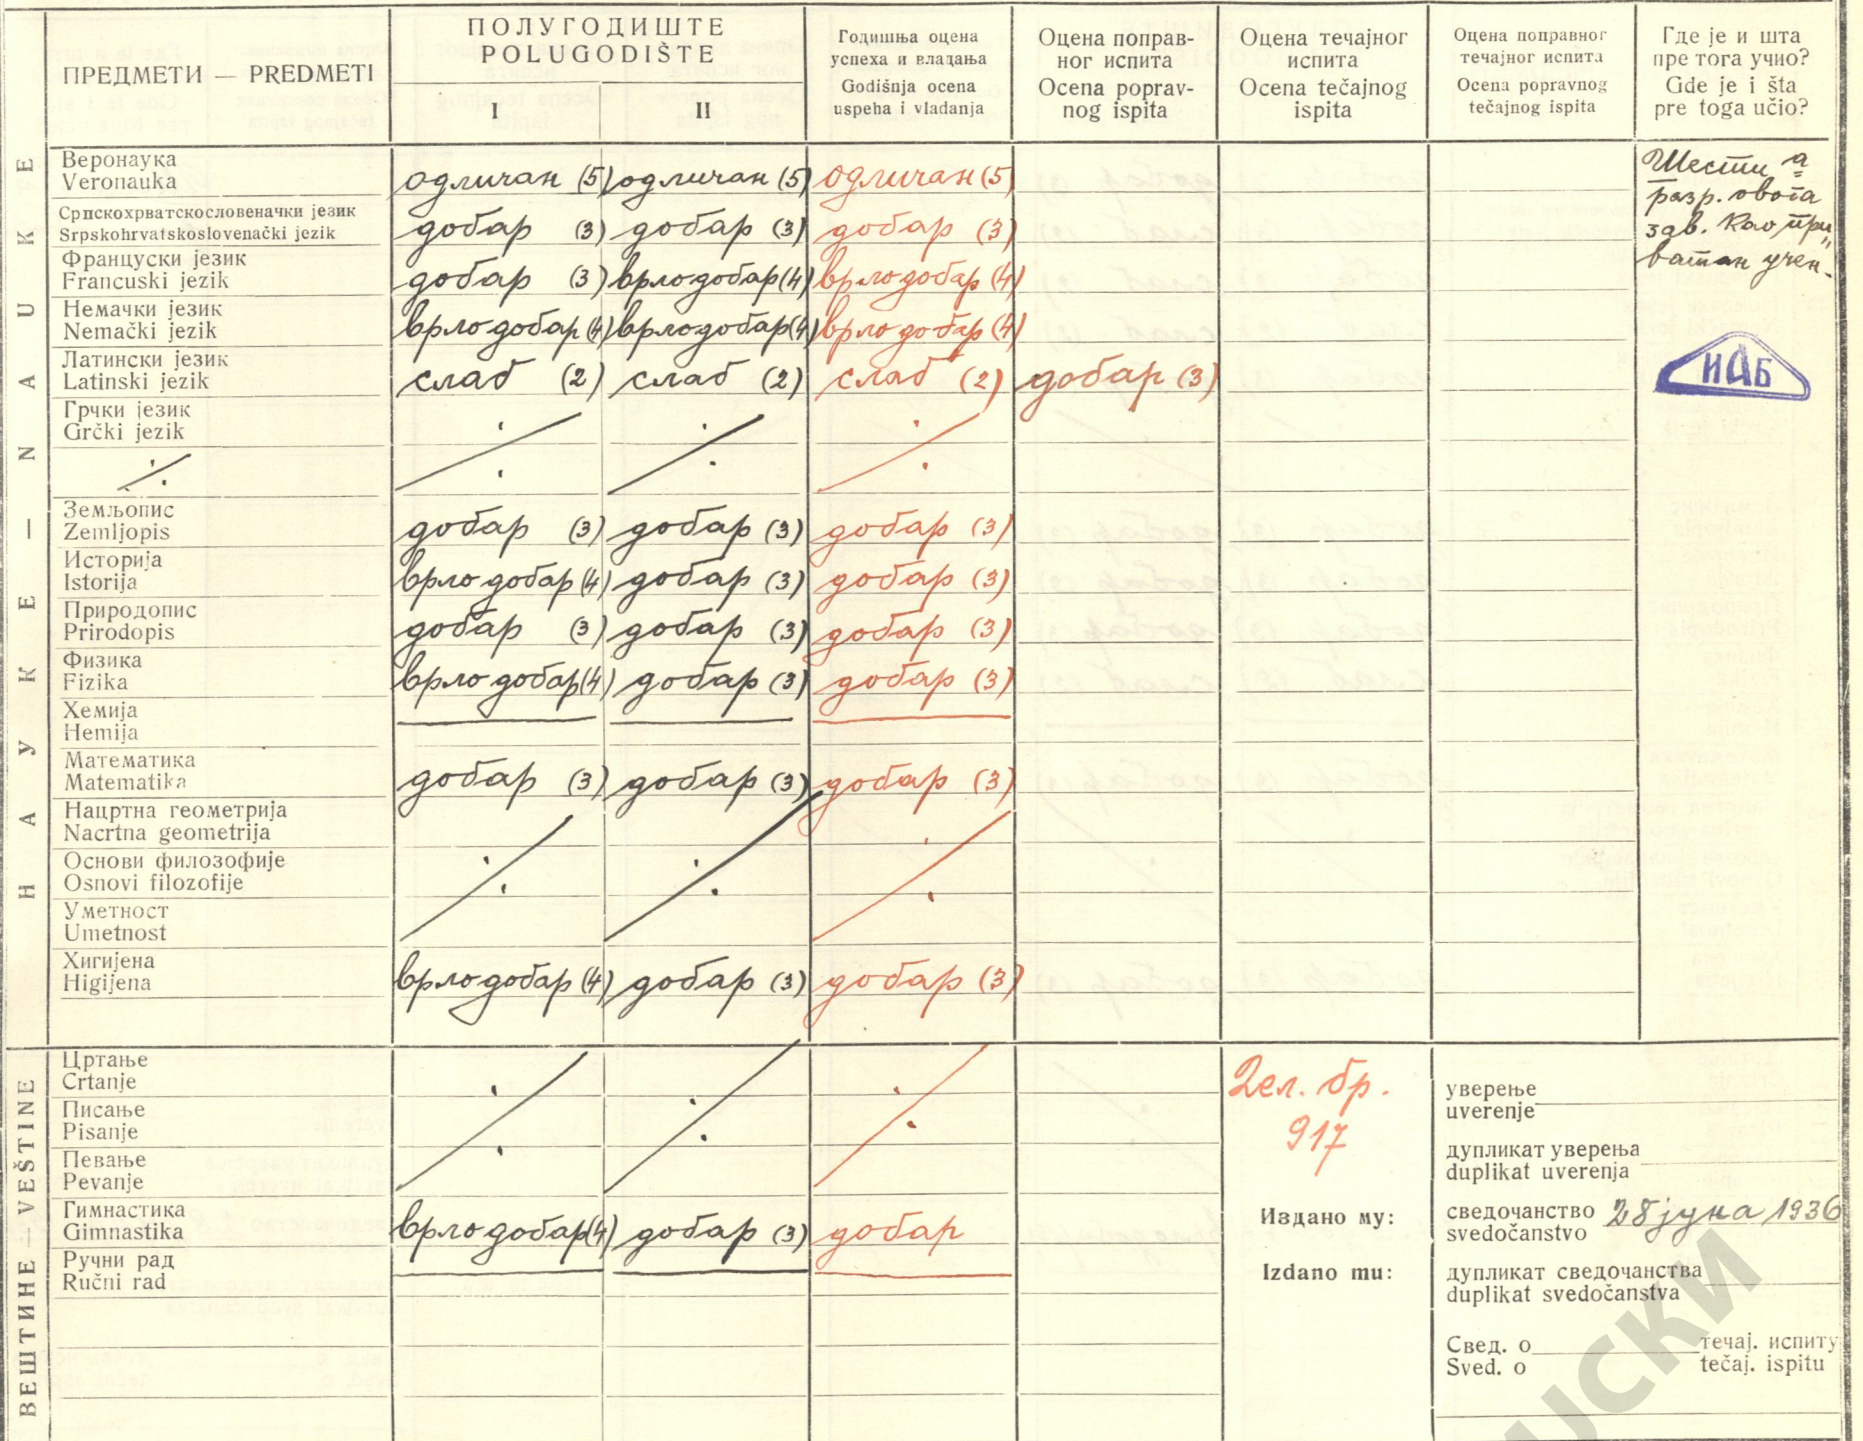 ПРЕДМЕТИ — PREDMETI
ПОЛУГОДИШТЕ
POLUGODIŠTE
I II
Годишња оцена
успеха и владања
Godišnja ocena
uspeha i vladanja
Оцена поправ-
ног испита
Ocena poprav-
nog ispita
Оцена течајног
испита
Ocena tečajnog
ispita
Оцена поправног
течајног испита
Ocena popravnog
tečajnog ispita
Где је и шта
пре тога учио?
Gde je i šta
pre toga učio?
НАУКЕ — NAUKE
Веронаука
Veronauka одличан (5) одличан (5) одличан (5)
Српскохрватскословеначки језик
Srpskohrvatskoslovenački jezik добар (3) добар (3) добар (3)
Француски језик
Francuski jezik добар (3) врло добар (4) врло добар (4)
Немачки језик
Nemački jezik врло добар (4) врло добар (4) врло добар (4)
Латински језик
Latinski jezik слаб (2) слаб (2) слаб (2) добар (3)
Грчки језик
Grčki jezik
Земљопис
Zemljopis добар (3) добар (3) добар (3)
Историја
Istorija врло добар (4) добар (3) добар (3)
Природопис
Prirodopis добар (3) добар (3) добар (3)
Физика
Fizika врло добар (4) добар (3) добар (3)
Хемија
Hemija
Математика
Matematika добар (3) добар (3) добар (3)
Нацртна геометрија
Nacrtna geometrija
Основи филозофије
Osnovi filozofije
Уметност
Umetnost
Хигијена
Higijena врло добар (4) добар (3) добар (3)
Шести а
разр. овога
зав. као при„
ватан учен.
ИАБ
ВЕШТИНЕ — VEŠTINE
Цртање
Crtanje
Писање
Pisanje
Певање
Pevanje
Гимнастика
Gimnastika врло добар (4) добар (3) добар
Ручни рад
Ručni rad
Дел. бр.
917
Издано му:
Izdano mu:
уверење
uverenje
дупликат уверења
duplikat uverenja
сведочанство
svedočanstvo 28 јуна 1936
дупликат сведочанства
duplikat svedočanstva
Свед. о течај. испиту
Sved. o tečaj. ispitu